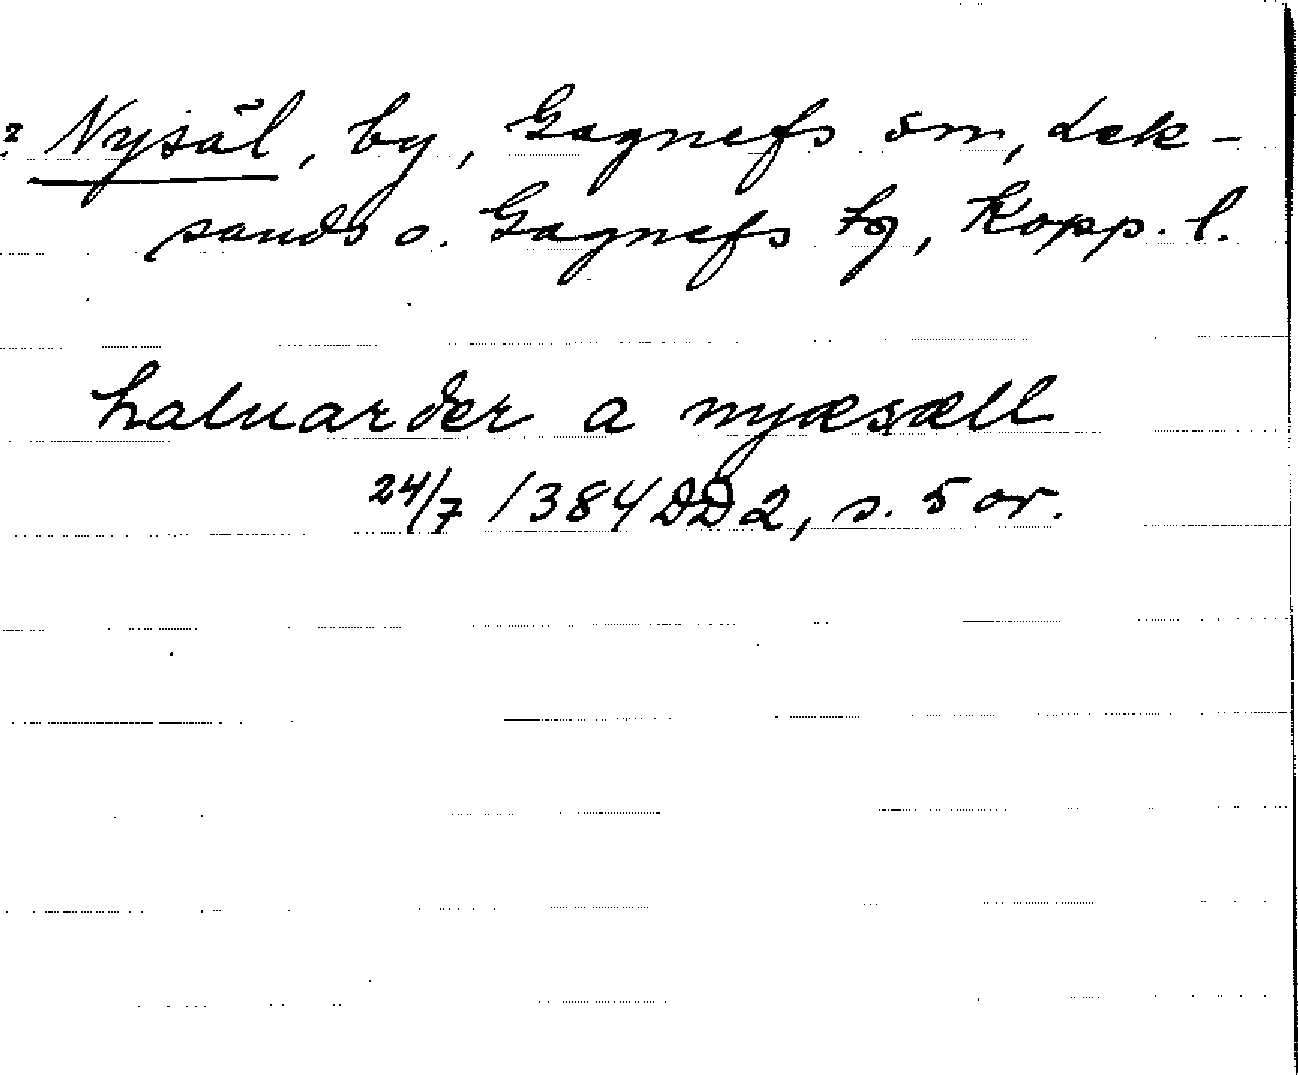 ? Nysäl, by, Gagnefs sn, Lek-
sands o. Gagnefs tg, Kopp. l.
haluarder a nyæsæll
24/7 1384 DD2, s. 5 or.